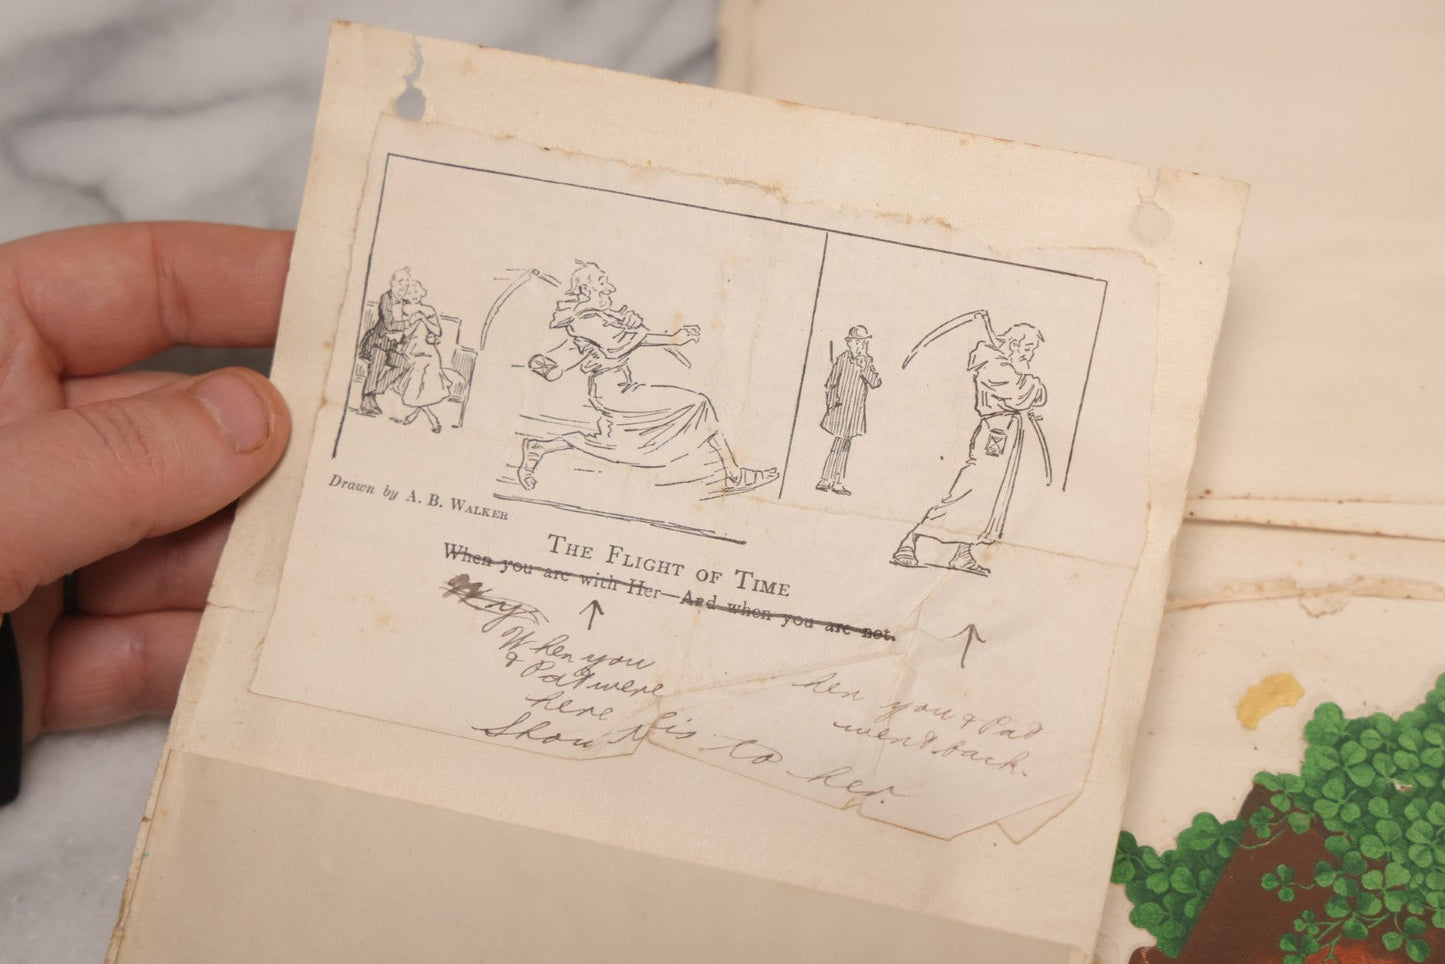 Drawn by A. B. WALKER
THE FLIGHT OF TIME
When you are with Her—And when you are not.
When you
& Pat were
here
hen you & Pat
went back.
Show this to her.